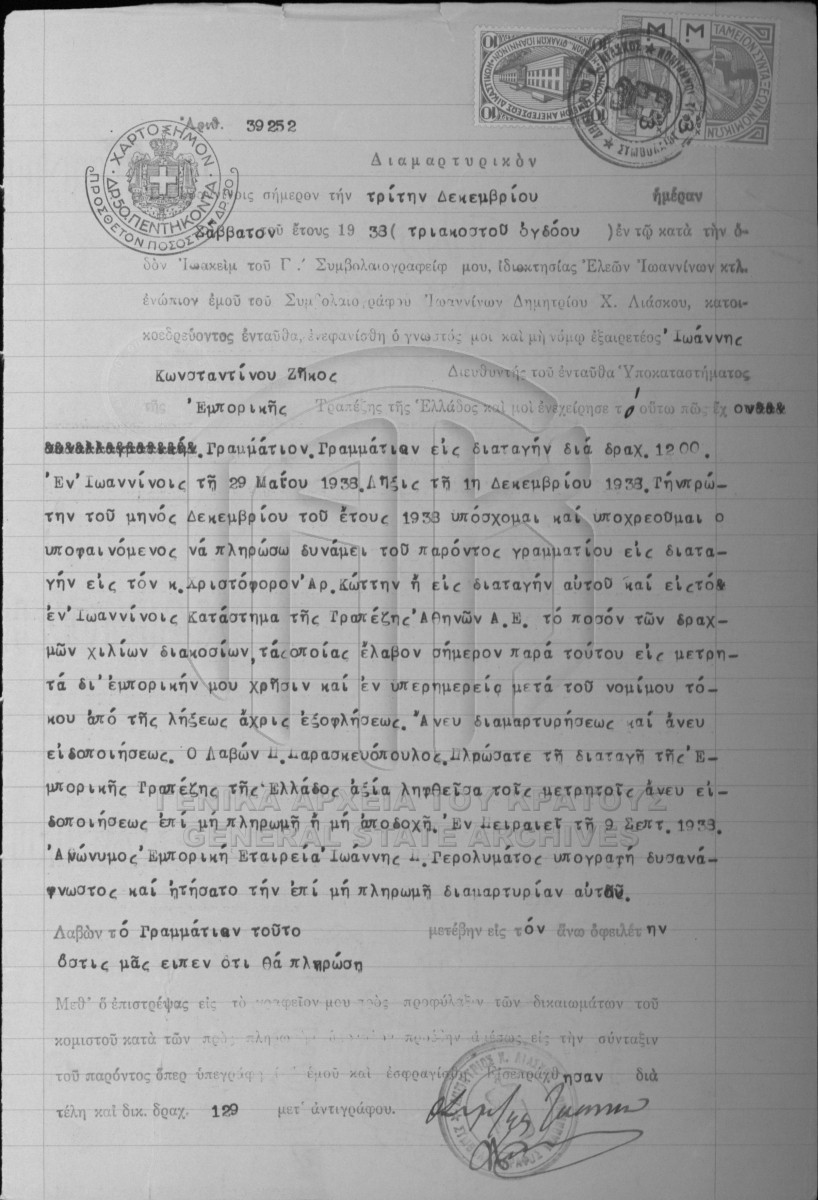 Ἀριθ. 39252
ΧΑΡΤΟΣΗΜΟΝ
ΔΡ. 50 ΠΕΝΤΗΚΟΝΤΑ
ΠΡΟΣΘΕΤΟΝ ΠΟΣΟΣΤΟΝ
ΤΑΜΕΙΟΝ ΣΥΝΤΑΞΕΩΝ ΝΟΜΙΚΩΝ
Διαμαρτυρικὸν
σήμερον τήν τρίτην Δεκεμβρίου ἡμέραν
Σάββατον τοῦ ἔτους 1938( τριακοστοῦ ὀγδόου )ἐν τῷ κατὰ τὴν ὁ-
δὸν Ἰωακεὶμ τοῦ Γ.′ Συμβολαιογραφείῳ μου, ἰδιοκτησίας Ἐλεῶν Ἰωαννίνων κτλ.
ἐνώπιον ἐμοῦ τοῦ Συμβολαιογράφου Ἰωαννίνων Δημητρίου Χ. Λιάσκου, κατοι-
κοεδρεύοντος ἐνταῦθα, ἐνεφανίσθη ὁ γνωστός μοι καὶ μὴ νόμῳ ἐξαιρετέος Ἰωάννης
Κωνσταντίνου Ζῆκος Διευθυντής τοῦ ἐνταῦθα Ὑποκαταστήματος
τῆς Ἐμπορικῆς Τραπέζης τῆς Ἑλλάδος καὶ μοὶ ἐνεχείρησε τό οὕτω πως ἔχον
Γραμμάτιον.Γραμμάτιον εἰς διαταγήν διά δραχ. 1200.
Ἐν Ἰωαννίνοις τῇ 29 Μαΐου 1938.Λῆξις τῇ 1η Δεκεμβρίου 1938.Τήνπρώ-
την τοῦ μηνός Δεκεμβρίου τοῦ ἔτους 1938 υπόσχομαι καί υποχρεοῦμαι ο
υποφαινόμενος νά πληρώσω δυνάμει τοῦ παρόντος γραμματίου εἰς διατα-
γήν εἰς τόν κ.Χριστόφορον Αρ.Κώττην ἤ εἰς διαταγήν αὐτοῦ καί εἰςτό
ἐν Ἰωαννίνοις Κατάστημα τῆς Τραπέζης Ἀθηνῶν Α.Ε. τό ποσόν τῶν δραχ-
μῶν χιλίων διακοσίων,τάςοποίας ἔλαβον σήμερον παρά τούτου εἰς μετρη-
τά δι'ἐμπορικήν μου χρῆσιν καί ἐν υπερημερείᾳ μετά τοῦ νομίμου τό-
κου ἀπό τῆς λήξεως ἄχρις ἐξοφλήσεως.Ἄνευ διαμαρτυρήσεως καί ἄνευ
εἰδοποιήσεως. Ο Λαβών Π.Παρασκευόπουλος.Πληρώσατε τῇ διαταγῇ τῆς Ἐ-
μπορικῆς Τραπέζης τῆς Ἑλλάδος ἀξία ληφθεῖσα τοῖς μετρητοῖς ἄνευ εἰ-
δοποιήσεως ἐπί μή πληρωμῇ ἤ μή ἀποδοχῇ. Ἐν Πειραιεῖ τῇ 9 Σεπτ.1938.
Ἀνώνυμος Ἐμπορική Ἑταιρεία Ἰωάννης Π.Γερολυμάτος υπογραφή δυσανά-
γνωστος καί ἠτήσατο τήν ἐπί μή πληρωμῇ διαμαρτυρίαν αὐτοῦ.
Λαβὼν τό Γραμμάτιον τοῦτο μετέβην εἰς τόν ἄνω ὀφειλέτην
ὅστις μᾶς ειπεν ὅτι θά πληρώσῃ
Μεθ' ὃ ἐπιστρέψας εἰς τὸ γραφεῖον μου πρὸς προφύλαξιν τῶν δικαιωμάτων τοῦ
κομιστοῦ κατὰ τῶν πρὸς ἀμέσως εἰς τὴν σύνταξιν
τοῦ παρόντος ὅπερ ὑπεγράφη ἐμοῦ καὶ ἐσφραγίσθη Εἰσεπράχθησαν διὰ
τέλη καὶ δικ. δραχ. 129 μετ' ἀντιγράφου.
ΓΕΝΙΚΑ ΑΡΧΕΙΑ ΤΟΥ ΚΡΑΤΟΥΣ
GENERAL STATE ARCHIVES